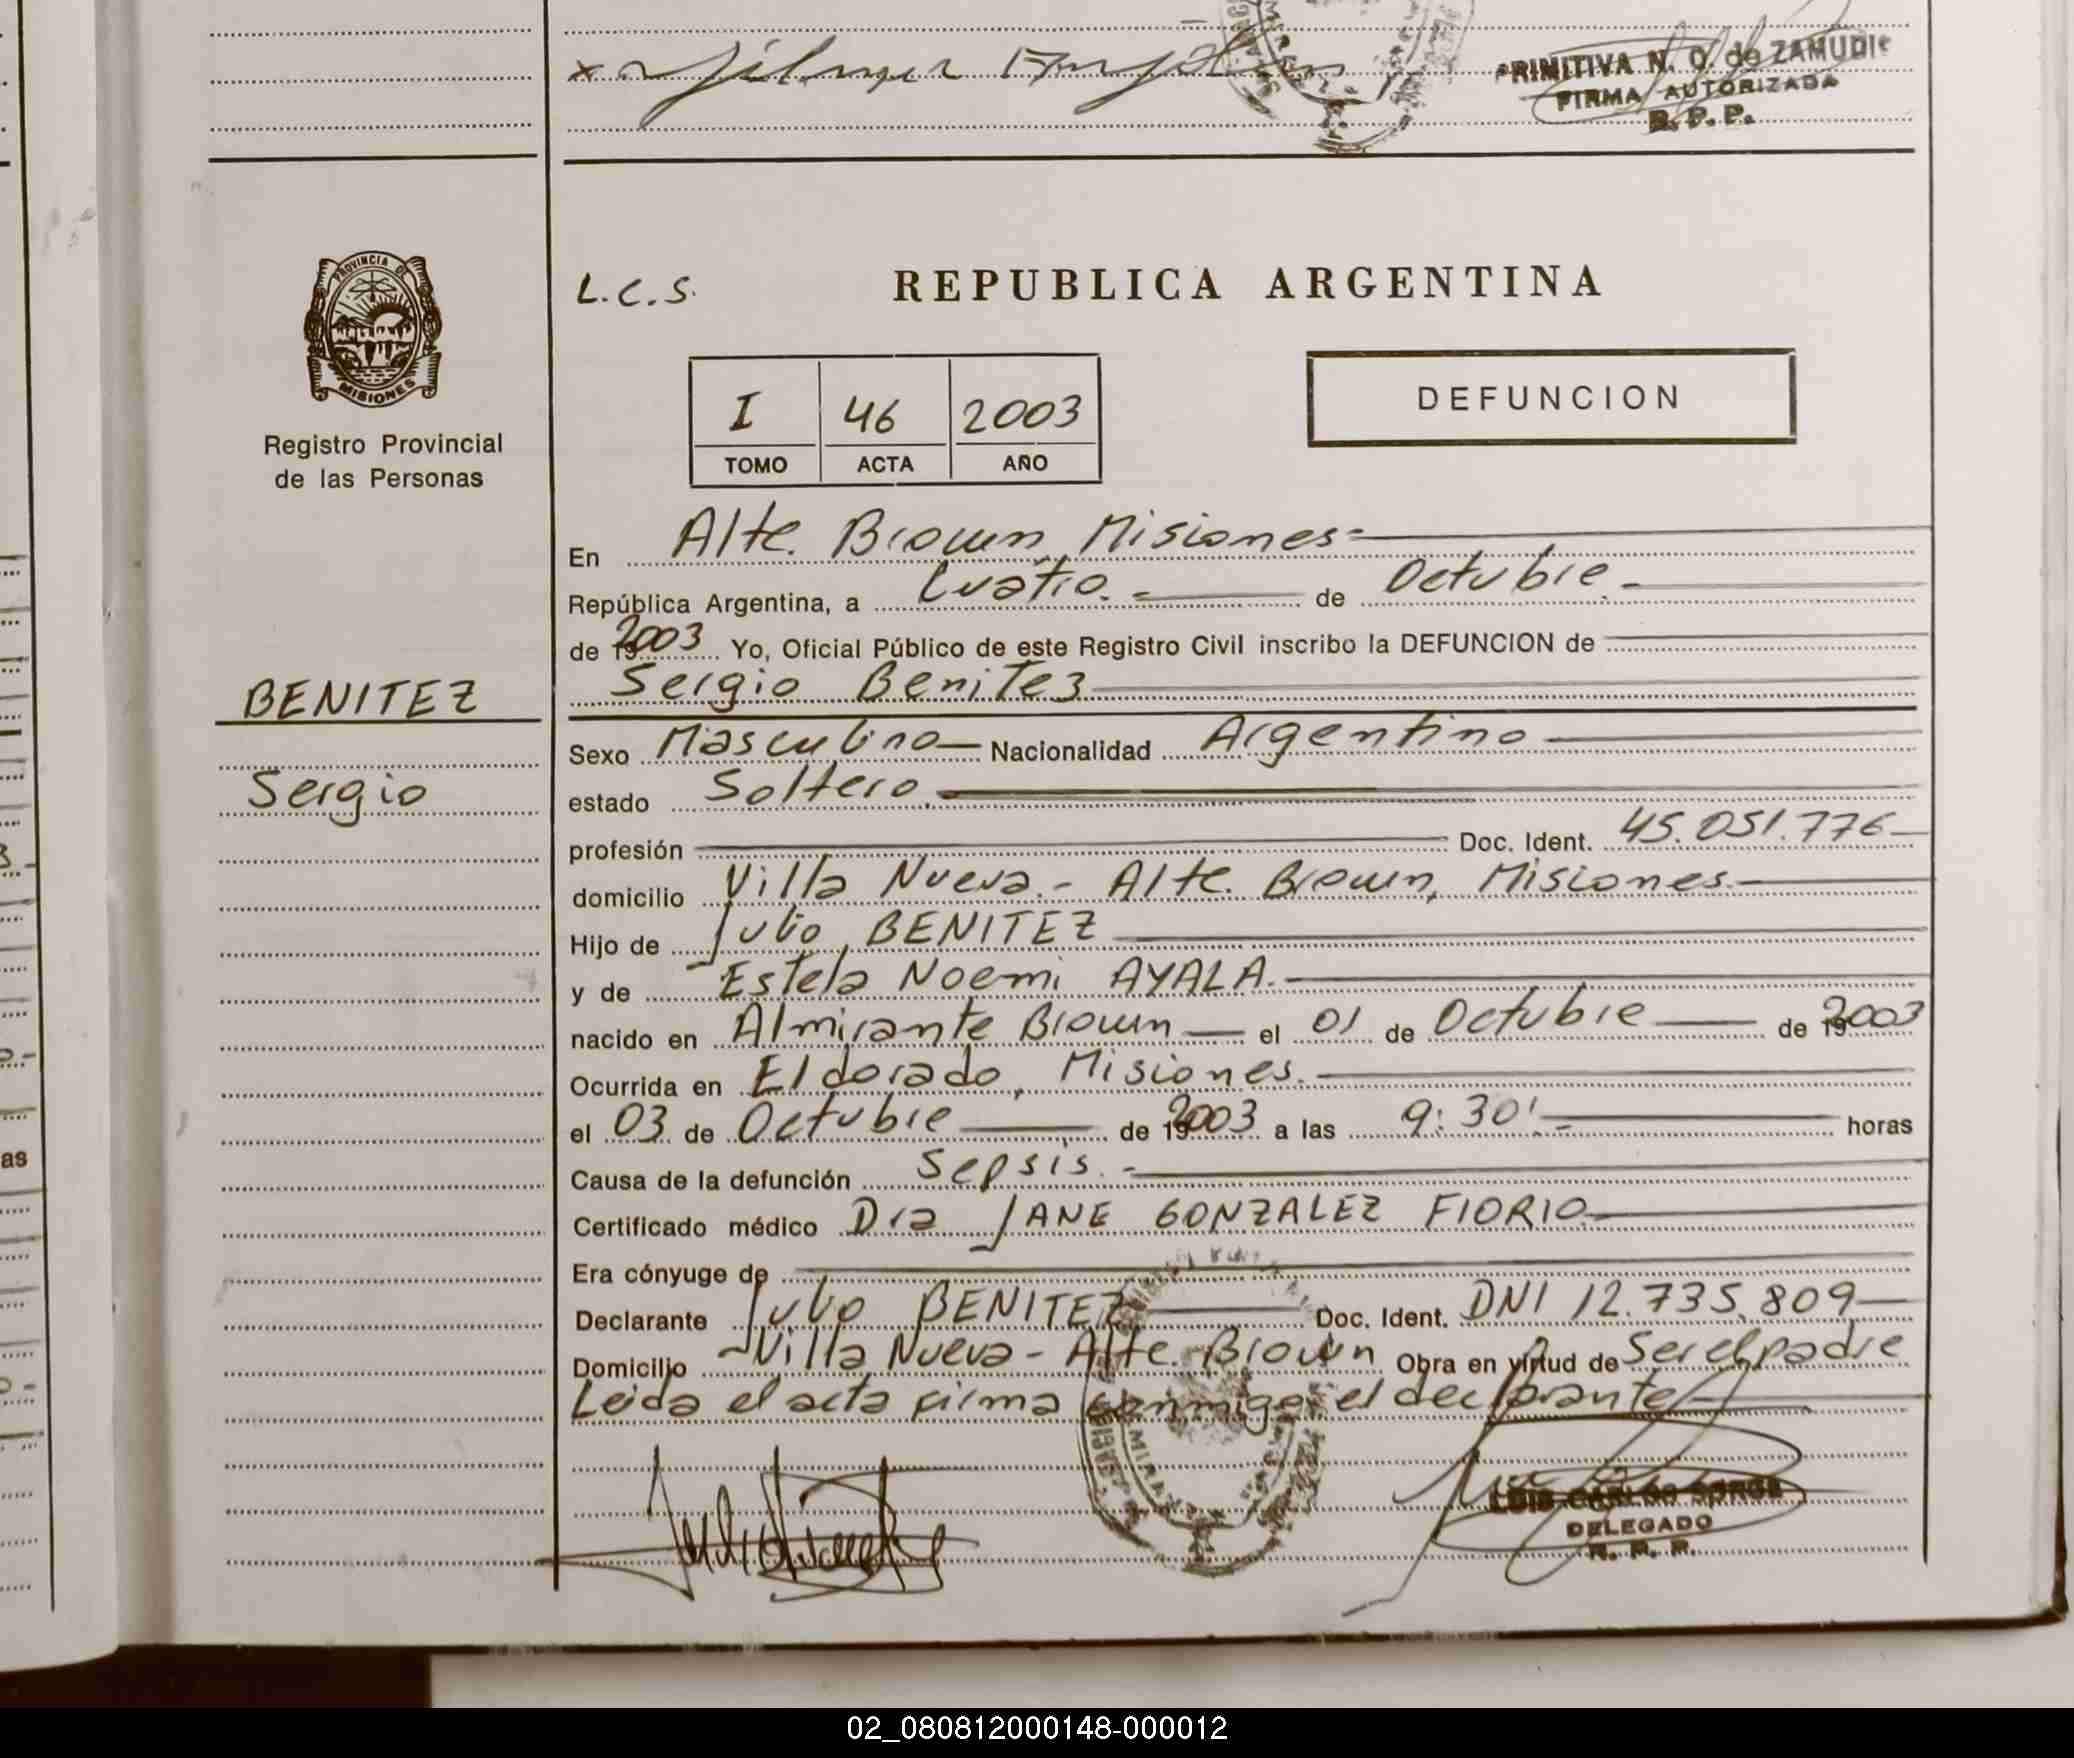 PRIMITIVA N. O. de ZAMUDIO
FIRMA AUTORIZADA
R. P. P.
PROVINCIA DE
MISIONES
Registro Provincial
de las Personas
L.C.S.
REPUBLICA ARGENTINA
I 46 2003
TOMO ACTA AÑO
DEFUNCION
En Alte. Brown, Misiones
República Argentina, a Cuatro. de Octubre.
de 2003 Yo, Oficial Público de este Registro Civil inscribo la DEFUNCION de
Sergio Benitez
BENITEZ
Sergio
Sexo Masculino Nacionalidad Argentino
estado Soltero
profesión Doc. Ident. 45.051.776
domicilio Villa Nueva - Alte. Brown, Misiones
Hijo de Julio BENITEZ
y de Estela Noemi AYALA.
nacido en Almirante Brown el 01 de Octubre de 2003
Ocurrida en Eldorado, Misiones.
el 03 de Octubre de 2003 a las 9:30' horas
Causa de la defunción Sepsis.
Certificado médico Dra JANE GONZALEZ FIORIO
Era cónyuge de
Declarante Julio BENITEZ Doc. Ident. DNI 12.735.809
Domicilio Villa Nueva - Alte. Brown Obra en virtud de Ser el padre
Leida el acta firma conmigo el declarante
LUIS CARLOS
DELEGADO
R. P. P.
as
02_080812000148-000012